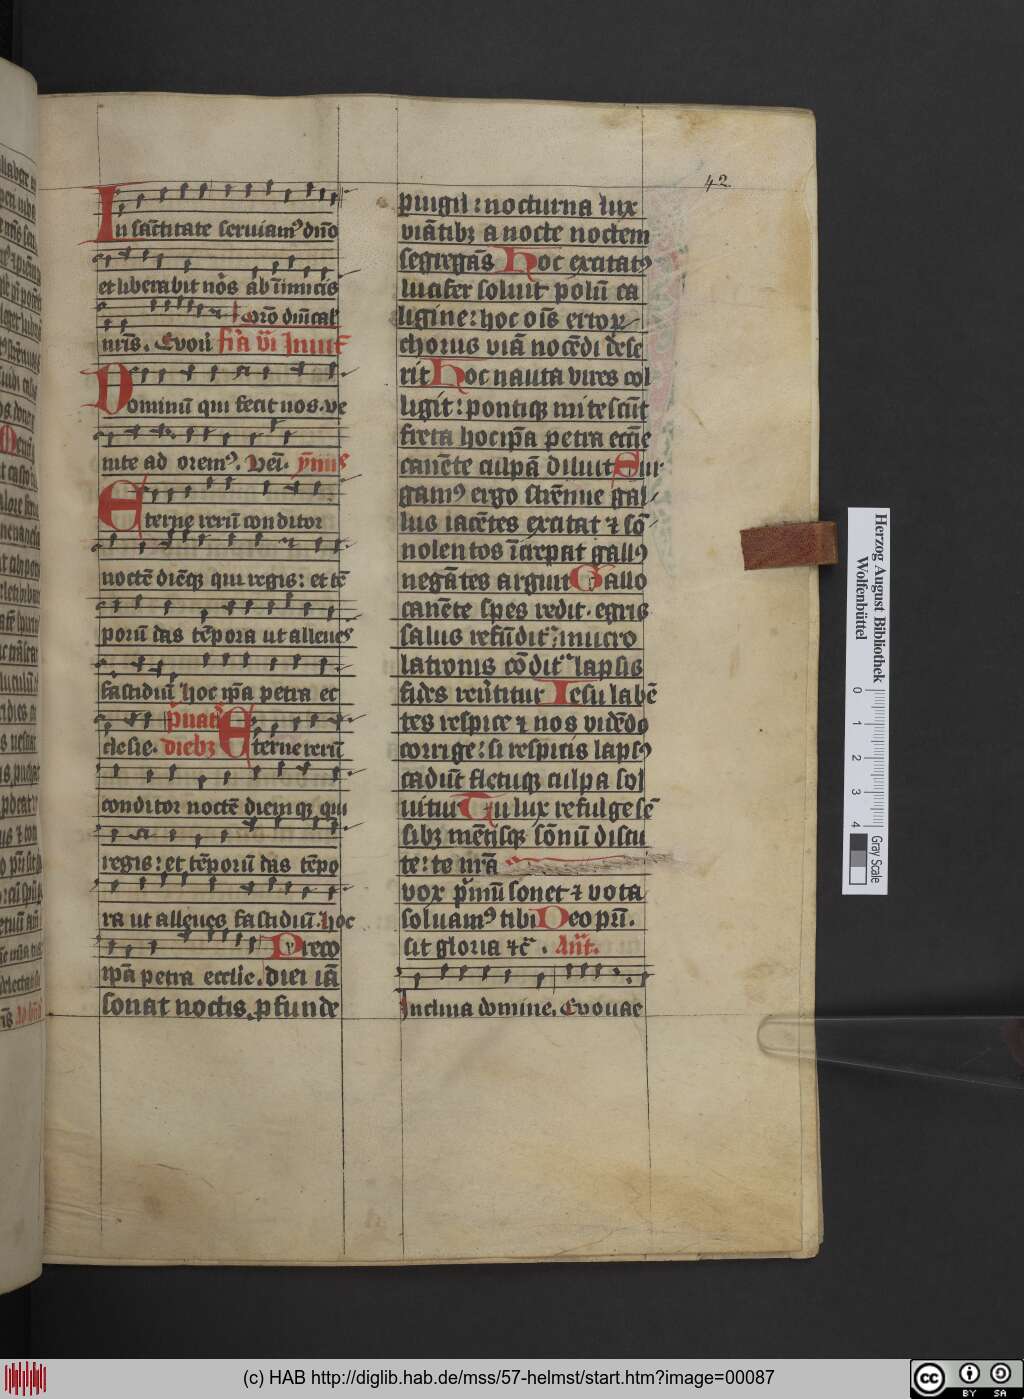 42
In sāctitate seruiamꝰ dn̄o
et liberabit nōs ab īimicis
Coro diuīcal
nr̄is. Evoū fīa vi Inuit
Dominū qui fecit nos. ve
nite ad oremꝰ. Uen̄. ymnꝰ
Eterne rerū conditor
noctē diēqꝫ qui regis: et tē
porū das tēpora ut alleueꝰ
fastidiū hoc ip̄a petra ec
p̄uat
clesie. diebꝫ Eterne rerū
conditor noctē diemqꝫ qui
regis: et tēporū das tēpo
ra ut alleues fastidiū. hoc
Preco
ip̄a petra ecclie. diei iā
sonat noctis. ꝓfunde
puigil: nocturna lux
viātibꝫ a nocte noctem
segregās Hoc excitatꝰ
lucifer soluit polū ca
ligine: hoc oīs erroꝝ
chorus viā nocēdi dese
rit Hoc nauta vires col
ligit: pontiqꝫ mitescūt
freta hoc ip̄a petra ecc̄ie
canēte culpā diluit Sur
gamꝰ ergo strēnue gal
lus iacētes excitat ⁊ sō
nolentos īcrepat gallꝰ
negātes arguit Gallo
canēte spes redit. egris
salus refūdit: mucro
latronis cōdit lapsis
fides reuītitur Iesu labē
tes respice ⁊ nos vidēdo
corrige: si respicis lapsꝰ
cadūt fletuqꝫ culpa sol
uitur Tu lux refulge sē
sibꝫ mētisqꝫ sōnū discu
te: te nr̄ā
vox p̄mū sonet ⁊ vota
soluamꝰ tibi Deo pr̄i.
sit gloria ⁊c̄. An̄t.
Inclina domine. Evouae
Herzog August Bibliothek
Wolfenbüttel
0 1 2 3 4
Gray Scale
(c) HAB http://diglib.hab.de/mss/57-helmst/start.htm?image=00087
cc BY SA